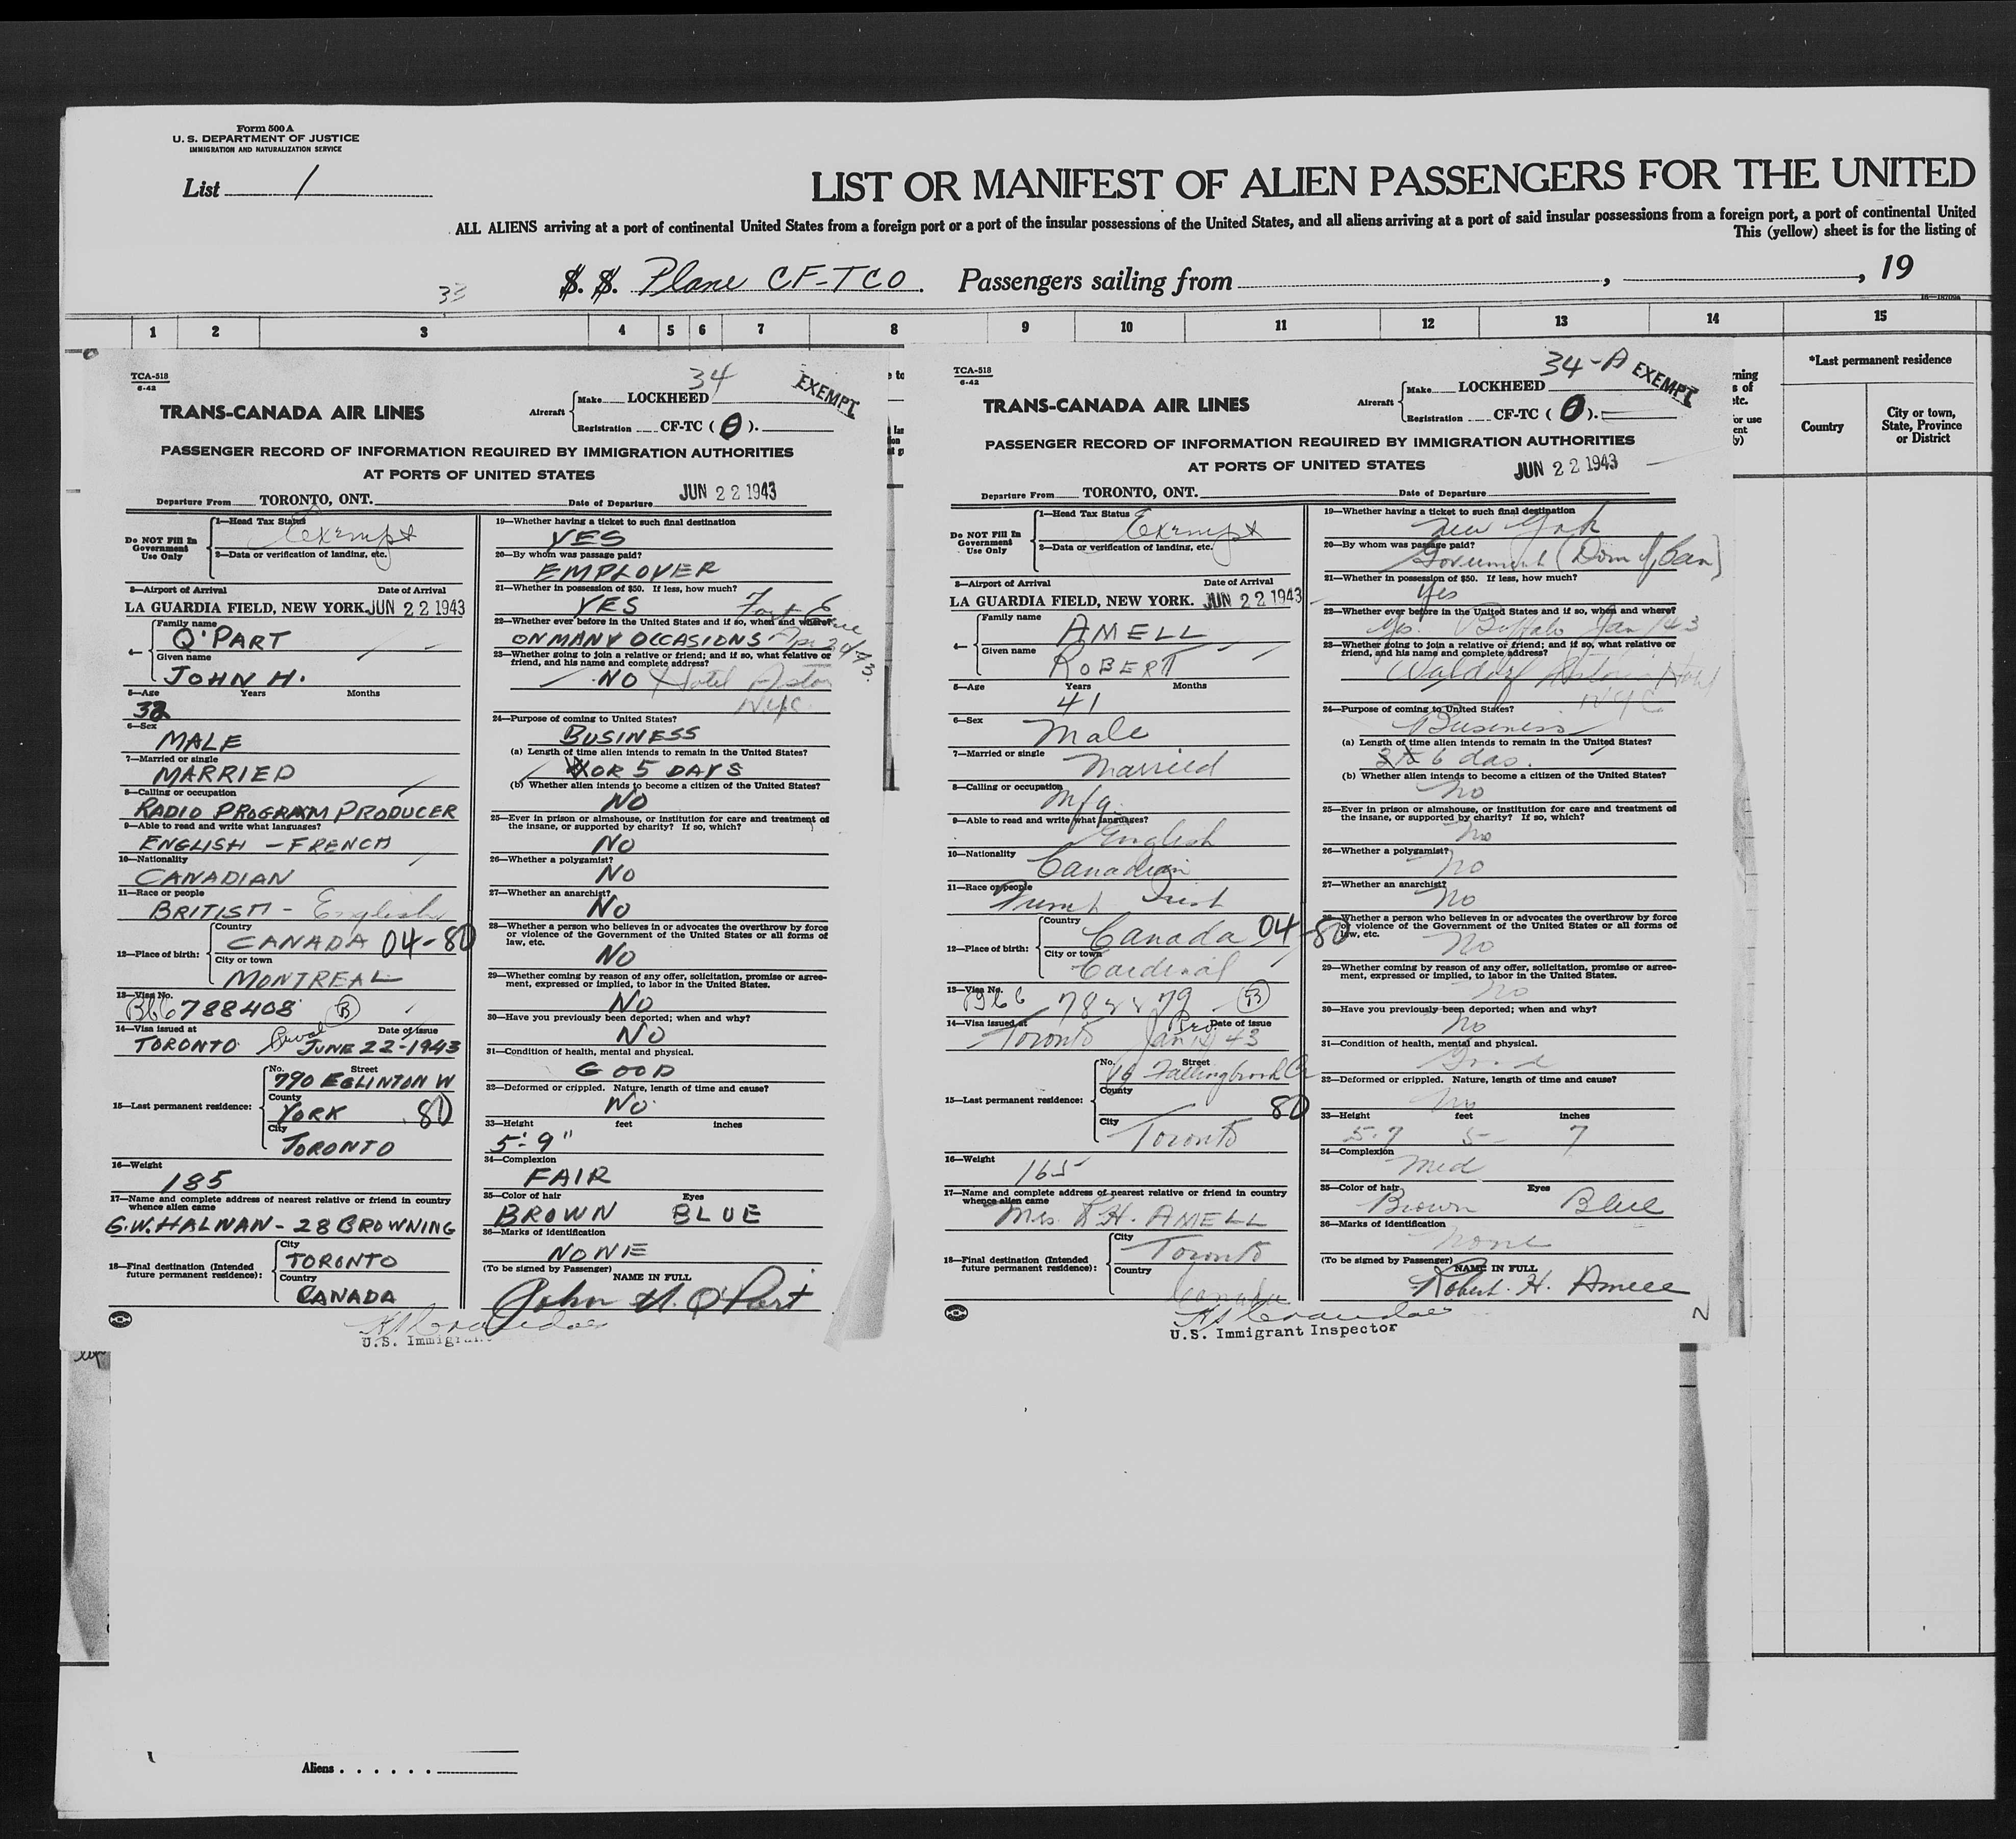 Form 500 A
U. S. DEPARTMENT OF JUSTICE
IMMIGRATION AND NATURALIZATION SERVICE
List 1
LIST OR MANIFEST OF ALIEN PASSENGERS FOR THE UNITED
ALL ALIENS arriving at a port of continental United States from a foreign port or a port of the insular possessions of the United States, and all aliens arriving at a port of said insular possessions from a foreign port, a port of continental United
This (yellow) sheet is for the listing of
33
S. S. Plane CF-TCO. Passengers sailing from , , 19
1 2 3 4 5 6 7 8 9 10 11 12 13 14 15
*Last permanent residence
Country
City or town, State, Province or District
TCA-518
6-42
34
EXEMPT
TRANS-CANADA AIR LINES
Aircraft
Make LOCKHEED
Registration CF-TC ( O ).
PASSENGER RECORD OF INFORMATION REQUIRED BY IMMIGRATION AUTHORITIES
AT PORTS OF UNITED STATES
JUN 22 1943
Departure From TORONTO, ONT. Date of Departure
Do NOT Fill In Government Use Only
1—Head Tax Status Exempt
2—Data or verification of landing, etc.
3—Airport of Arrival Date of Arrival
LA GUARDIA FIELD, NEW YORK. JUN 22 1943
4— Family name
O'PART
Given name
JOHN H.
5—Age Years Months
32
6—Sex
MALE
7—Married or single
MARRIED
8—Calling or occupation
RADIO PROGRAM PRODUCER
9—Able to read and write what languages?
ENGLISH - FRENCH
10—Nationality
CANADIAN
11—Race or people
BRITISH - English
12—Place of birth:
Country
CANADA 04-80
City or town
MONTREAL
13—Visa No.
788408 B
14—Visa issued at Date of issue
TORONTO JUNE 22-1943
15—Last permanent residence:
No. Street
790 EGLINTON W
County
YORK 80
City
TORONTO
16—Weight
185
17—Name and complete address of nearest relative or friend in country whence alien came
G.W. HALNAN - 28 BROWNING
18—Final destination (Intended future permanent residence):
City
TORONTO
Country
CANADA
19—Whether having a ticket to such final destination
YES
20—By whom was passage paid?
EMPLOYER
21—Whether in possession of $50. If less, how much?
YES
22—Whether ever before in the United States and if so, when and where?
ON MANY OCCASIONS Fort Erie
23—Whether going to join a relative or friend; and if so, what relative or friend, and his name and complete address?
NO Hotel Astor
NYC
24—Purpose of coming to United States?
BUSINESS
(a) Length of time alien intends to remain in the United States?
OR 5 DAYS
(b) Whether alien intends to become a citizen of the United States?
NO
25—Ever in prison or almshouse, or institution for care and treatment of the insane, or supported by charity? If so, which?
NO
26—Whether a polygamist?
NO
27—Whether an anarchist?
NO
28—Whether a person who believes in or advocates the overthrow by force or violence of the Government of the United States or all forms of law, etc.
NO
29—Whether coming by reason of any offer, solicitation, promise or agreement, expressed or implied, to labor in the United States.
NO
30—Have you previously been deported; when and why?
NO
31—Condition of health, mental and physical.
GOOD
32—Deformed or crippled. Nature, length of time and cause?
NO.
33—Height feet inches
5'-9"
34—Complexion
FAIR
35—Color of hair Eyes
BROWN BLUE
36—Marks of identification
NONE
(To be signed by Passenger) NAME IN FULL
John H. O'Part
U.S. Immigrant
TCA-518
6-42
34-A
EXEMPT
TRANS-CANADA AIR LINES
Aircraft
Make LOCKHEED
Registration CF-TC ( O ).
PASSENGER RECORD OF INFORMATION REQUIRED BY IMMIGRATION AUTHORITIES
AT PORTS OF UNITED STATES
JUN 22 1943
Departure From TORONTO, ONT. Date of Departure
Do NOT Fill In Government Use Only
1—Head Tax Status Exempt
2—Data or verification of landing, etc.
3—Airport of Arrival Date of Arrival
LA GUARDIA FIELD, NEW YORK. JUN 22 1943
4— Family name
AMELL
Given name
ROBERT
5—Age Years Months
41
6—Sex
Male
7—Married or single
Married
8—Calling or occupation
Mfg.
9—Able to read and write what languages?
English
10—Nationality
Canadian
11—Race or people
Irish
12—Place of birth:
Country
Canada 04-80
City or town
Cardinal
13—Visa No.
B
14—Visa issued at Date of issue
Toronto Jan 43
15—Last permanent residence:
No. Street
19 Fallingbrook Cr
County
80
City
Toronto
16—Weight
165
17—Name and complete address of nearest relative or friend in country whence alien came
Mrs. R H. AMELL
18—Final destination (Intended future permanent residence):
City
Toronto
Country
Canada
19—Whether having a ticket to such final destination
New York
20—By whom was passage paid?
Government (Dom of Can)
21—Whether in possession of $50. If less, how much?
Yes
22—Whether ever before in the United States and if so, when and where?
Yes. Buffalo Jan/43
23—Whether going to join a relative or friend; and if so, what relative or friend, and his name and complete address?
Waldorf Astoria Hotel
NYC
24—Purpose of coming to United States?
Business
(a) Length of time alien intends to remain in the United States?
6 das.
(b) Whether alien intends to become a citizen of the United States?
No
25—Ever in prison or almshouse, or institution for care and treatment of the insane, or supported by charity? If so, which?
No
26—Whether a polygamist?
No
27—Whether an anarchist?
No
28—Whether a person who believes in or advocates the overthrow by force or violence of the Government of the United States or all forms of law, etc.
No
29—Whether coming by reason of any offer, solicitation, promise or agreement, expressed or implied, to labor in the United States.
No
30—Have you previously been deported; when and why?
No
31—Condition of health, mental and physical.
Good
32—Deformed or crippled. Nature, length of time and cause?
No
33—Height feet inches
5-7 5- 7
34—Complexion
Med
35—Color of hair Eyes
Brown Blue
36—Marks of identification
None
(To be signed by Passenger) NAME IN FULL
Robert. H. Amell
U.S. Immigrant Inspector
2
Aliens